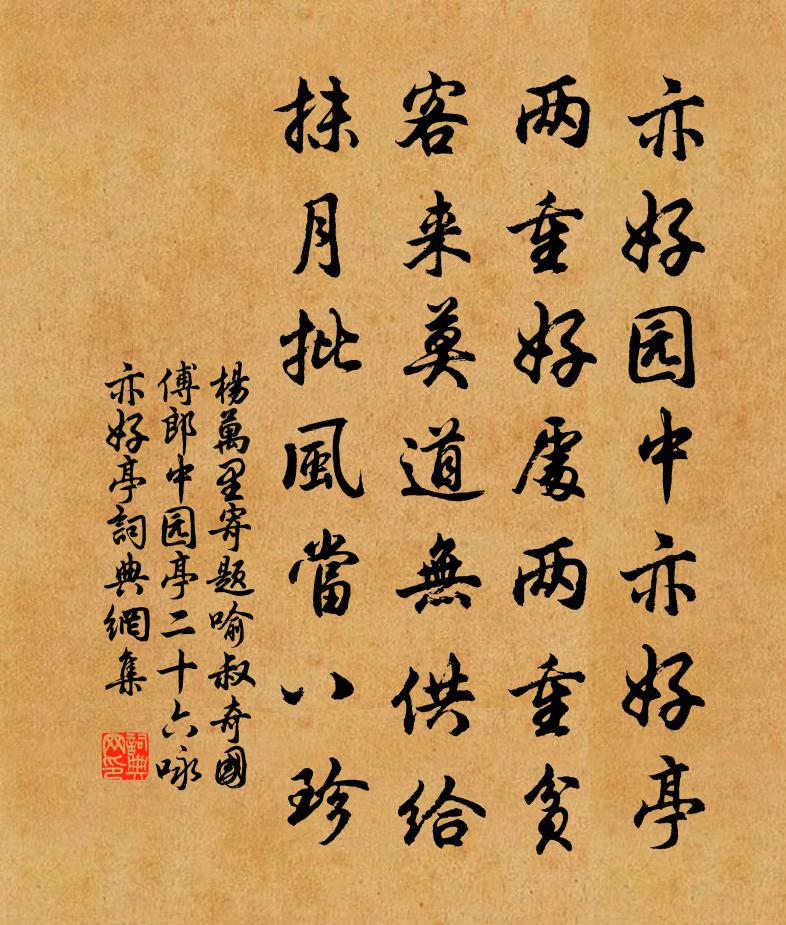 亦好园中亦好亭
两重好處两重貧
客来莫道無供給
抹月批風當八珍
楊萬里寄題喻叔奇國
傅郎中园亭二十六咏
亦好亭詞典網集
詞典网印